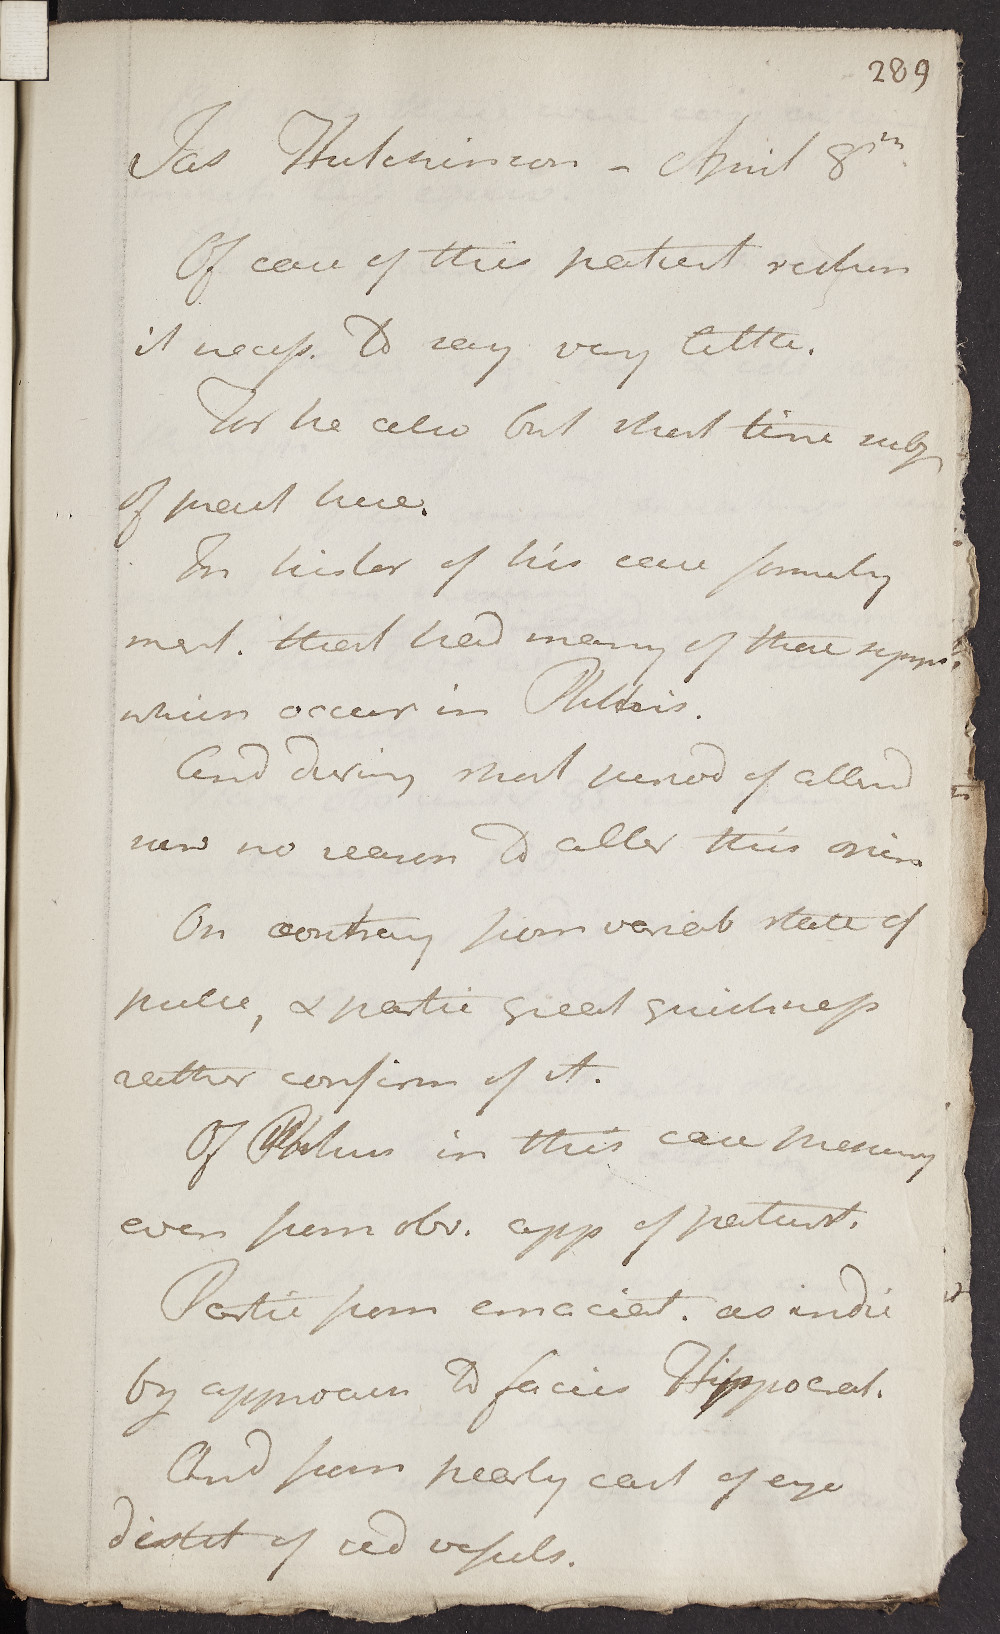 289
Jas Hutchinson - April 8th.
Of case of this patient reckon
it necess. to say very little.
For he also but short time subj
of treat here.
In histor of his case formerly
ment. that had many of those sympt.
which occur in Phthisis.
And during short period of attend
saw no reason to alter this opin.
On contrary from variab state of
pulse, & partic great quickness
rather confirm of it.
Of Phthis in this case presump
even from obv. app of patient.
Partic from emaciat. as indic
by approach to facies Hippocrat.
And from pearly cast of eye
distit of red vessels.